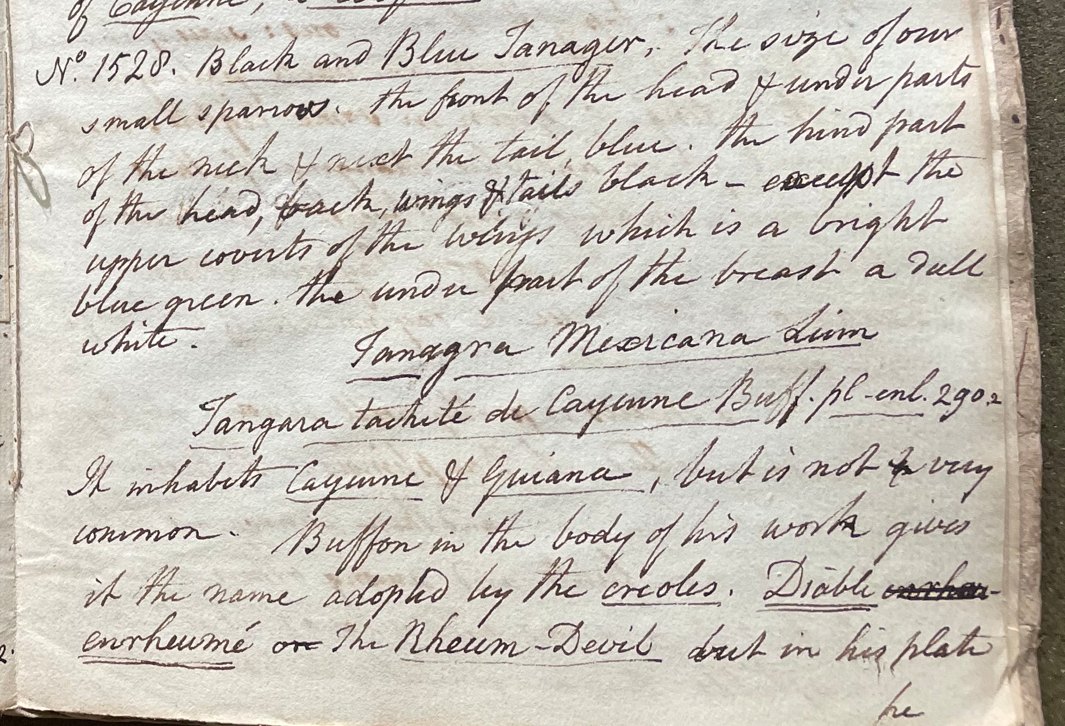 of Cayenne,
No. 1528. Black and Blue Tanager. The size of our
small sparrow. the front of the head & under parts
of the neck & next the tail, blue. the hind part
of the head, back, wings & tails black – except the
upper coverts of the wings which is a bright
blue green. the under part of the breast a dull
white.
Tanagra Mexicana Linn
Tangara tacheté de Cayenne Buff. pl-enl. 290.2
It inhabits Cayenne & Guiana, but is not very
common. Buffon in the body of his work gives
it the name adopted by the creoles. Diable enrheu-
enrheumé or The Rheum-Devil but in his plate
he